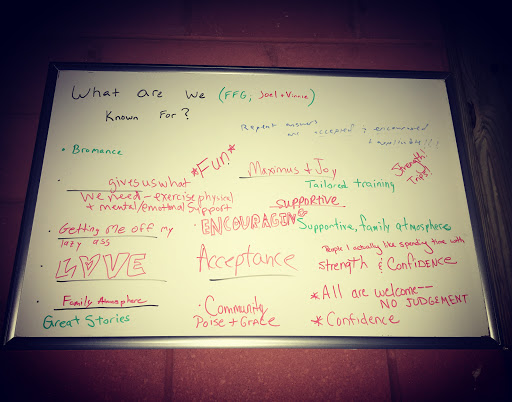 What are we (FFG, Joel + Vinnie)
Known For?
Repeat answers
are accepted & encouraged
• Bromance
*Fun*
Maximus + Joy
Strength!
gives us what
Tailored training
we need - exercise/physical
+ mental/emotional support
supportive
• Getting me off my
lazy ass
ENCOURAGING
Supportive, family atmosphere
People I actually like spending time with
• LOVE
Acceptance
Strength & Confidence
• Family Atmosphere
• Community
* All are welcome--
NO JUDGEMENT
Great Stories
Poise + Grace
* Confidence